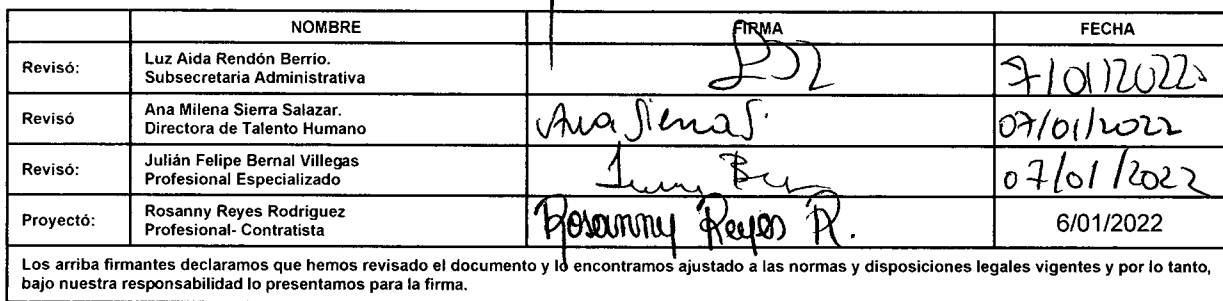 NOMBRE FIRMA FECHA
Revisó: Luz Aida Rendón Berrío.
Subsecretaria Administrativa
7/01/2022
Revisó Ana Milena Sierra Salazar.
Directora de Talento Humano
Ana Sierra S. 07/01/2022
Revisó: Julián Felipe Bernal Villegas
Profesional Especializado
07/01/2022
Proyectó: Rosanny Reyes Rodriguez
Profesional- Contratista
Rosanny Reyes R. 6/01/2022
Los arriba firmantes declaramos que hemos revisado el documento y lo encontramos ajustado a las normas y disposiciones legales vigentes y por lo tanto,
bajo nuestra responsabilidad lo presentamos para la firma.